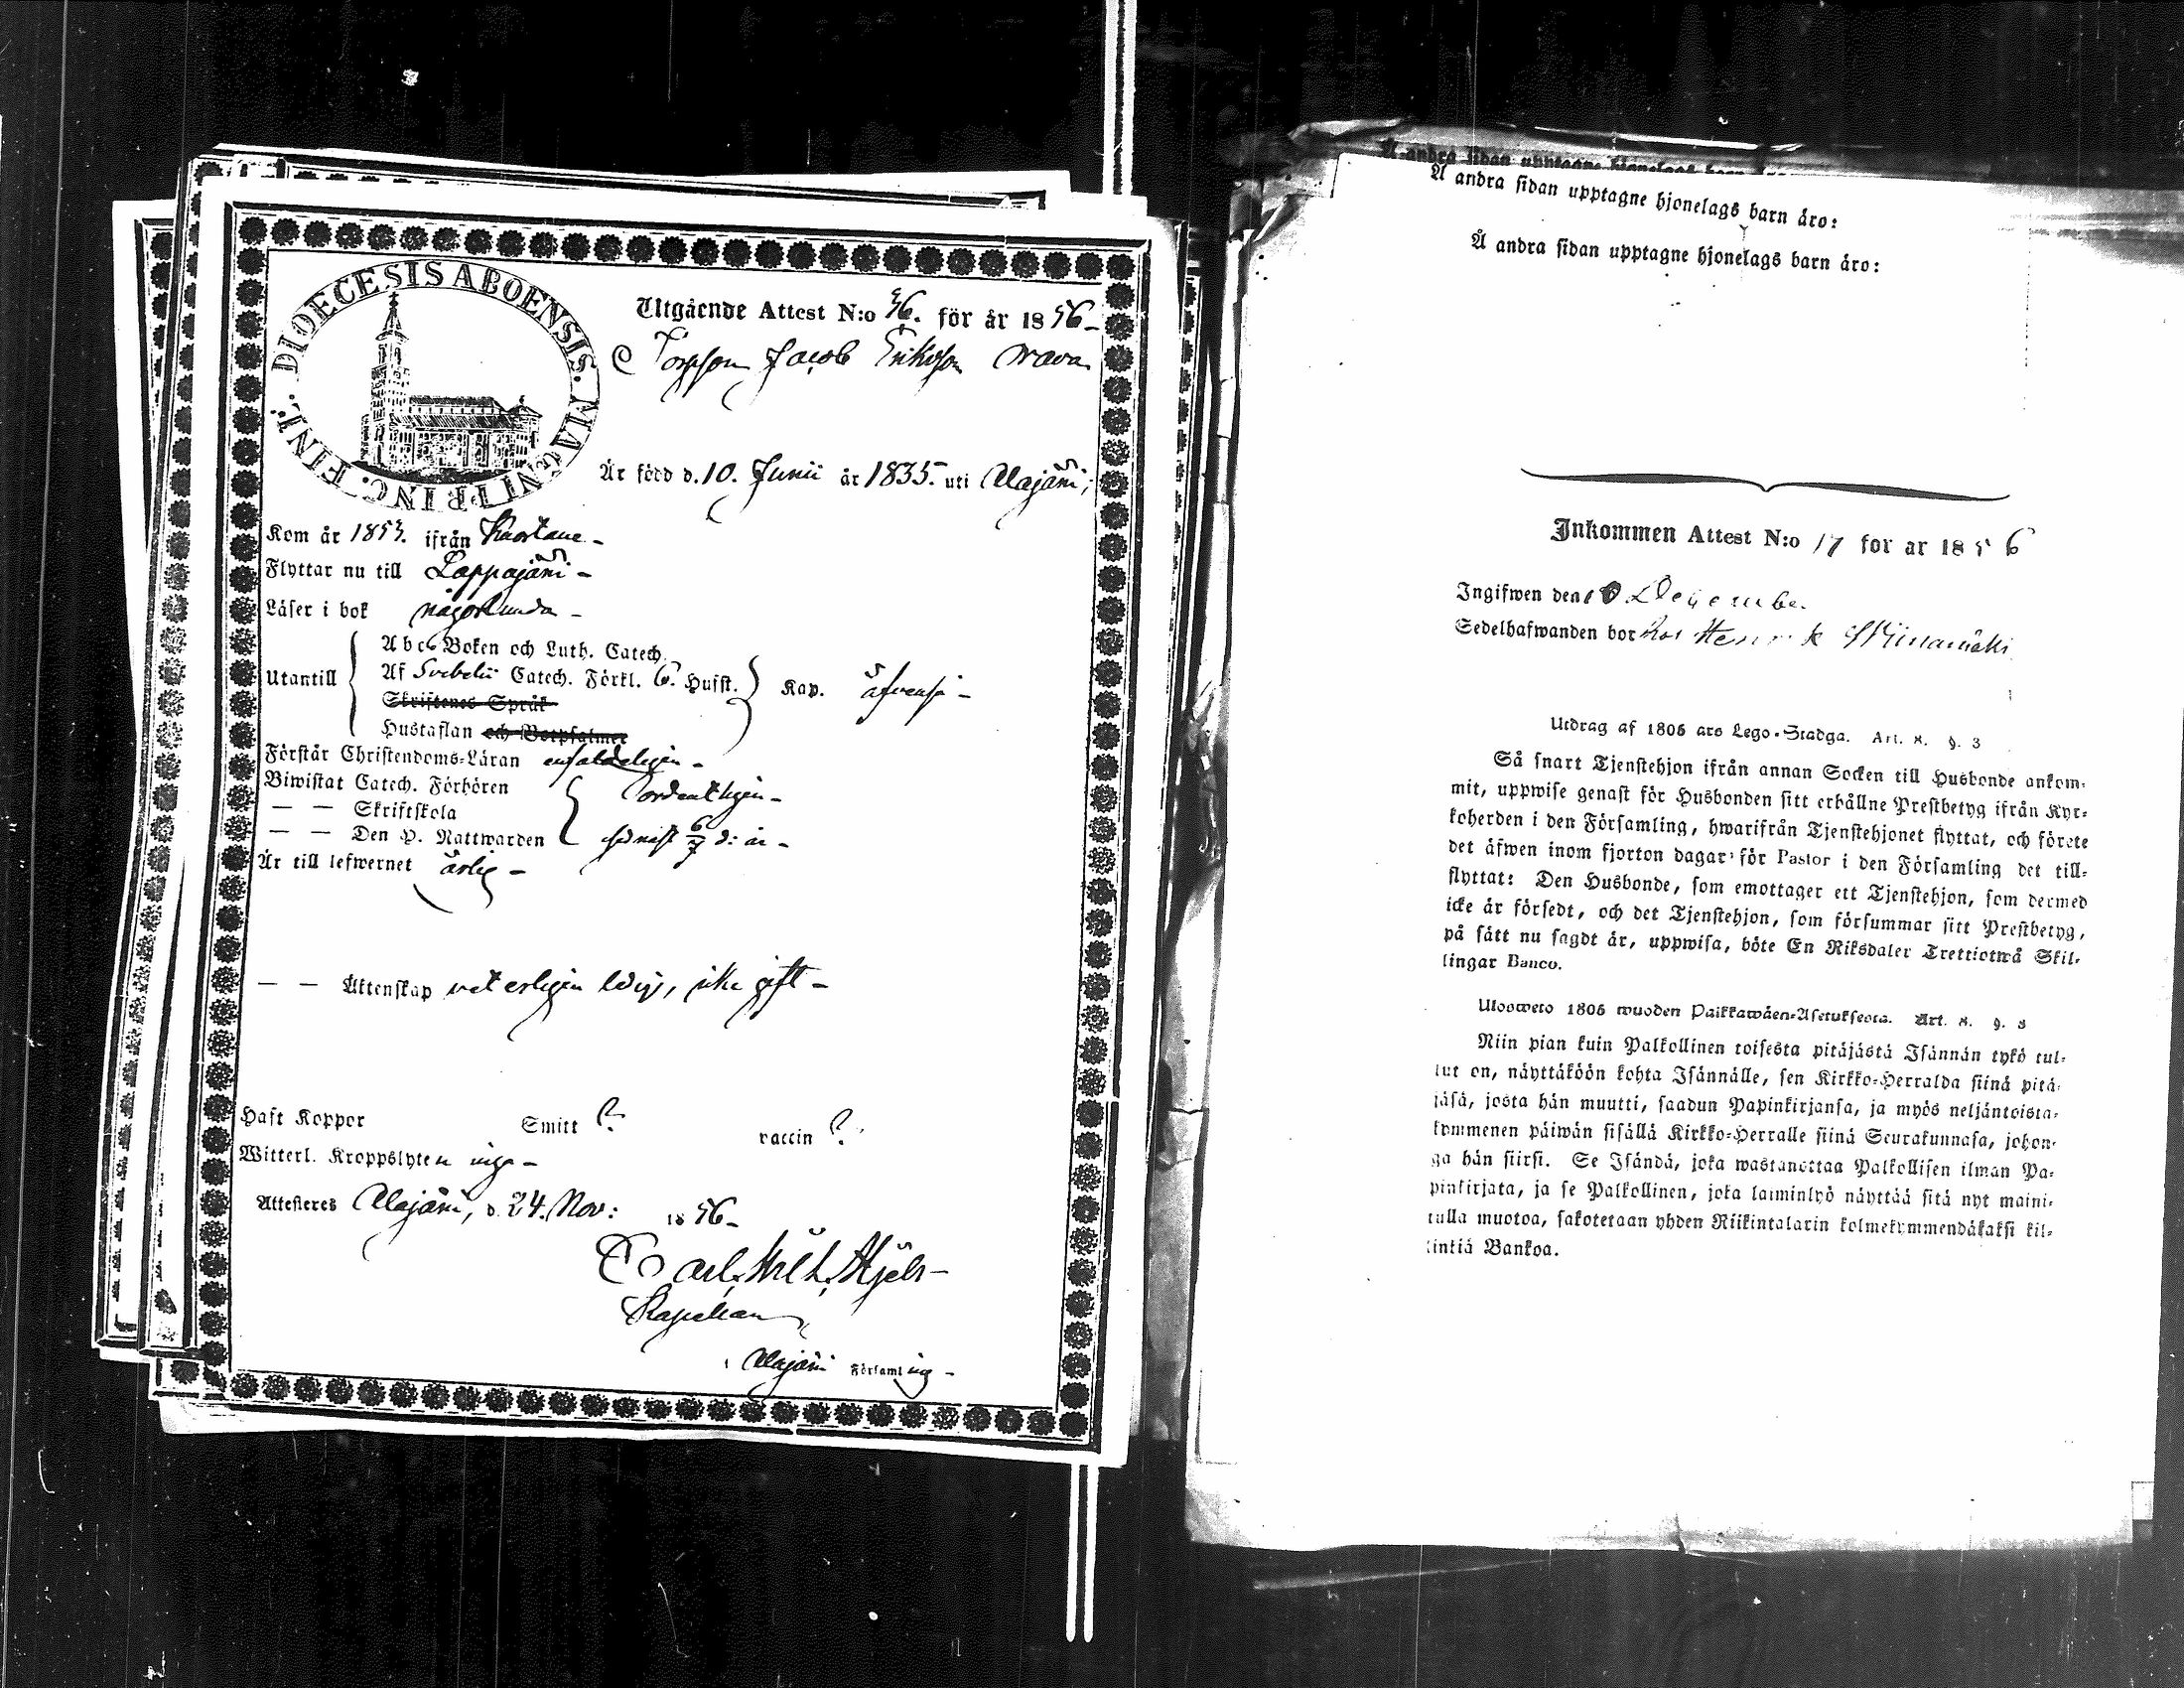 DIOECESIS ABOENSIS. MAGNI PRINC. FINL.
Utgående Attest N:o 56. för år 1856-
Torpson Jacob Eriksson
Är född d. 10. Junii år 1835. uti Alajärvi;
Kom år 1853. ifrån Kuortane -
Flyttar nu till Lappajärvi -
Läser i bok någorlunda -
Utantill
Abc Boken och Luth. Catech.
Af Svebelii Catech. Förkl. 6. Hufst. Kap. äfvenså -
Skriftenes Språk
Hustaflan och Botpsalmer
Förstår Christendoms-Läran enfaldeligen -
Biwistat Catech. Förhören ordentligen -
— — Skriftskola
— — Den H. Nattwarden sednast 6/7 d: år -
Är till lefwernet ärlig -
— — Äktenskap veterligen ledig, icke gift -
Haft Koppor Smitt ? vaccin ?
Witterl. Kroppslyten inga -
Attesteres Alajärvi, d. 24. Nov: 1856-
Carl Wilh.
Kapellan
i Alajärvi Församling -
Å andra sidan upptagne hjonelags barn äro:
Å andra sidan upptagne hjonelags barn äro:
Å andra sidan upptagne hjonelags barn äro:
Inkommen Attest N:o 17 för år 1856
Ingifwen den 10 December
Sedelhafwanden bor hos Henrik
Utdrag af 1805 års Lego-Stadga. Art. 8. §. 3
Så snart Tjenstehjon ifrån annan Socken till Husbonde ankom-
mit, uppwise genast för Husbonden sitt erhållne Prestbetyg ifrån Kyr-
koherden i den Församling, hwarifrån Tjenstehjonet flyttat, och förete
det äfwen inom fjorton dagar för Pastor i den Församling det till-
flyttat: Den Husbonde, som emottager ett Tjenstehjon, som dermed
icke är försedt, och det Tjenstehjon, som försummar sitt Prestbetyg,
på sätt nu sagdt är, uppwisa, böte En Riksdaler Trettiotwå Skil-
lingar Banco.
Ulosweto 1805 wuoden Palkkawäen-Asetuksesta. Art. 8. §. 3
Niin pian kuin Palkollinen toisesta pitäjästä Isännän tykö tul-
lut on, näyttäköön kohta Isännälle, sen Kirkko-Herralda siinä pitä-
jäsä, josta hän muutti, saadun Papinkirjansa, ja myös neljäntoista-
kymmenen päiwän sisällä Kirkko-Herralle siinä Seurakunnasa, johon-
ga hän siirsi. Se Isändä, joka wastanottaa Palkollisen ilman Pa-
pinkirjata, ja se Palkollinen, joka laiminlyö näyttää sitä nyt maini-
tulla muotoa, sakotetaan yhden Riikintalarin kolmekymmendäkaksi kil-
linkiä Bankoa.